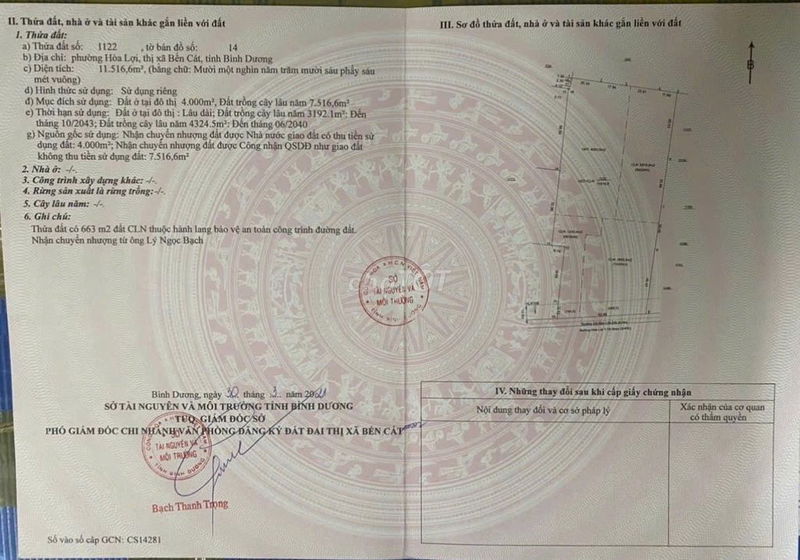 II. Thửa đất, nhà ở và tài sản khác gắn liền với đất
1. Thửa đất:
a) Thửa đất số: 1122 , tờ bản đồ số: 14
b) Địa chỉ: phường Hòa Lợi, thị xã Bến Cát, tỉnh Bình Dương
c) Diện tích: 11.516,6m², (bằng chữ: Mười một nghìn năm trăm mười sáu phẩy sáu
mét vuông)
d) Hình thức sử dụng: Sử dụng riêng
đ) Mục đích sử dụng: Đất ở tại đô thị 4.000m², Đất trồng cây lâu năm 7.516,6m²
e) Thời hạn sử dụng: Đất ở tại đô thị : Lâu dài; Đất trồng cây lâu năm 3192.1m²: Đến
tháng 10/2043; Đất trồng cây lâu năm 4324.5m²: Đến tháng 06/2040
g) Nguồn gốc sử dụng: Nhận chuyển nhượng đất được Nhà nước giao đất có thu tiền sử
dụng đất: 4.000m²; Nhận chuyển nhượng đất được Công nhận QSDĐ như giao đất
không thu tiền sử dụng đất: 7.516,6m²
2. Nhà ở: -/-.
3. Công trình xây dựng khác: -/-.
4. Rừng sản xuất là rừng trồng:-/-.
5. Cây lâu năm: -/-.
6. Ghi chú:
Thửa đất có 663 m2 đất CLN thuộc hành lang bảo vệ an toàn công trình đường đất.
Nhận chuyển nhượng từ ông Lý Ngọc Bạch
SỞ
TÀI NGUYÊN VÀ
MÔI TRƯỜNG
Bình Dương, ngày 30 tháng 3 năm
SỞ TÀI NGUYÊN VÀ MÔI TRƯỜNG TỈNH BÌNH DƯƠNG
TUQ. GIÁM ĐỐC SỞ
PHÓ GIÁM ĐỐC CHI NHÁNH VĂN PHÒNG ĐĂNG KÝ ĐẤT ĐAI THỊ XÃ BẾN CÁT
SỞ
TÀI NGUYÊN VÀ
MÔI TRƯỜNG
TỈNH BÌNH DƯƠNG
Bạch Thanh Trọng
Số vào sổ cấp GCN: CS14281
III. Sơ đồ thửa đất, nhà ở và tài sản khác gắn liền với đất
B
IV. Những thay đổi sau khi cấp giấy chứng nhận
Nội dung thay đổi và cơ sở pháp lý
Xác nhận của cơ quan
có thẩm quyền